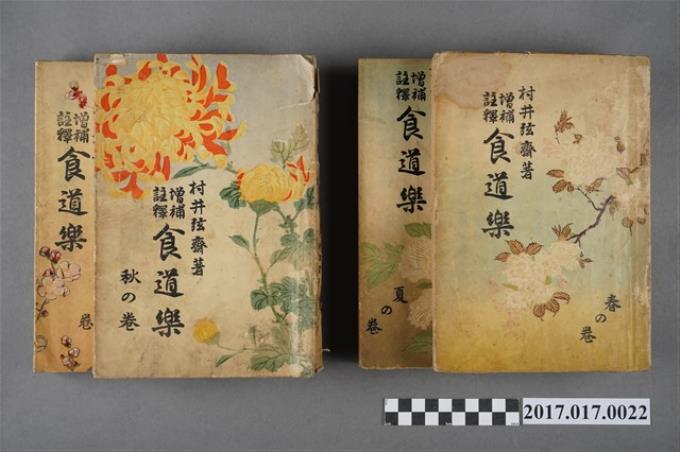 増補
註釋
食道樂
巻
村井弦齋著
増補
註釋
食道樂
秋の巻
増補
註釋
食道樂
夏の巻
村井弦齋著
増補
註釋
食道樂
春の巻
2017.017.0022